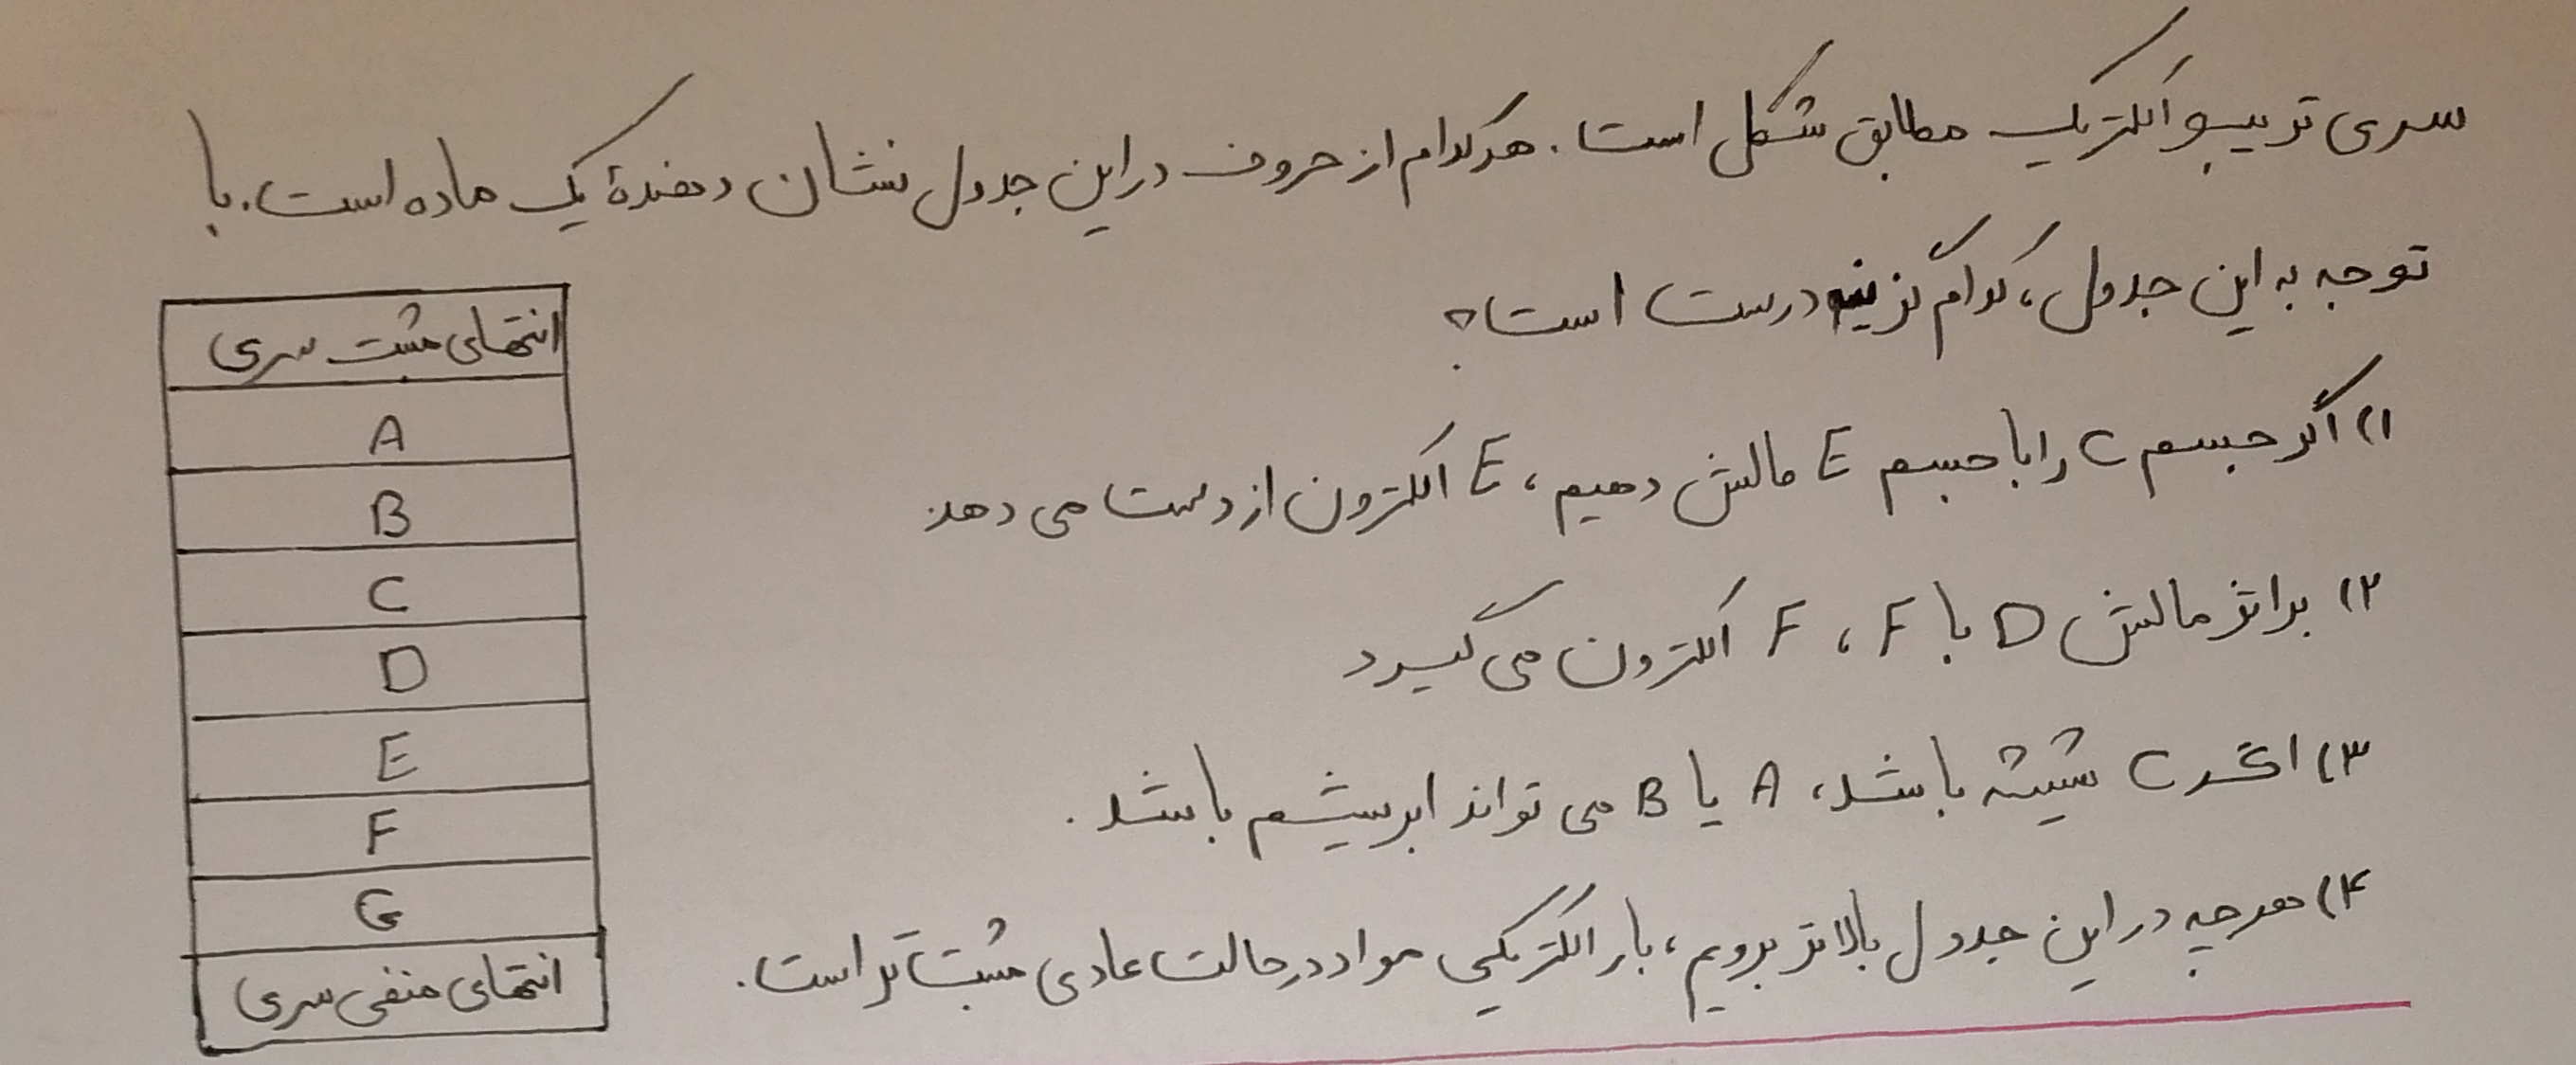 سری تریبوالکتریک مطابق شکل است. هرکدام از حروف در این جدول نشان دهندهٔ یک ماده است. با
توجه به این جدول، کدام گزینه درست است؟
۱) اگر جسم C را با جسم E مالش دهیم، E الکترون از دست می دهد
۲) براثر مالش D با F، F الکترون می گیرد
۳) اگر C شیشه باشد، A یا B می تواند ابریشم باشد.
۴) هرچه در این جدول بالاتر برویم، بار الکتریکی مواد در حالت عادی مثبت تر است.
انتهای مثبت سری
A
B
C
D
E
F
G
انتهای منفی سری